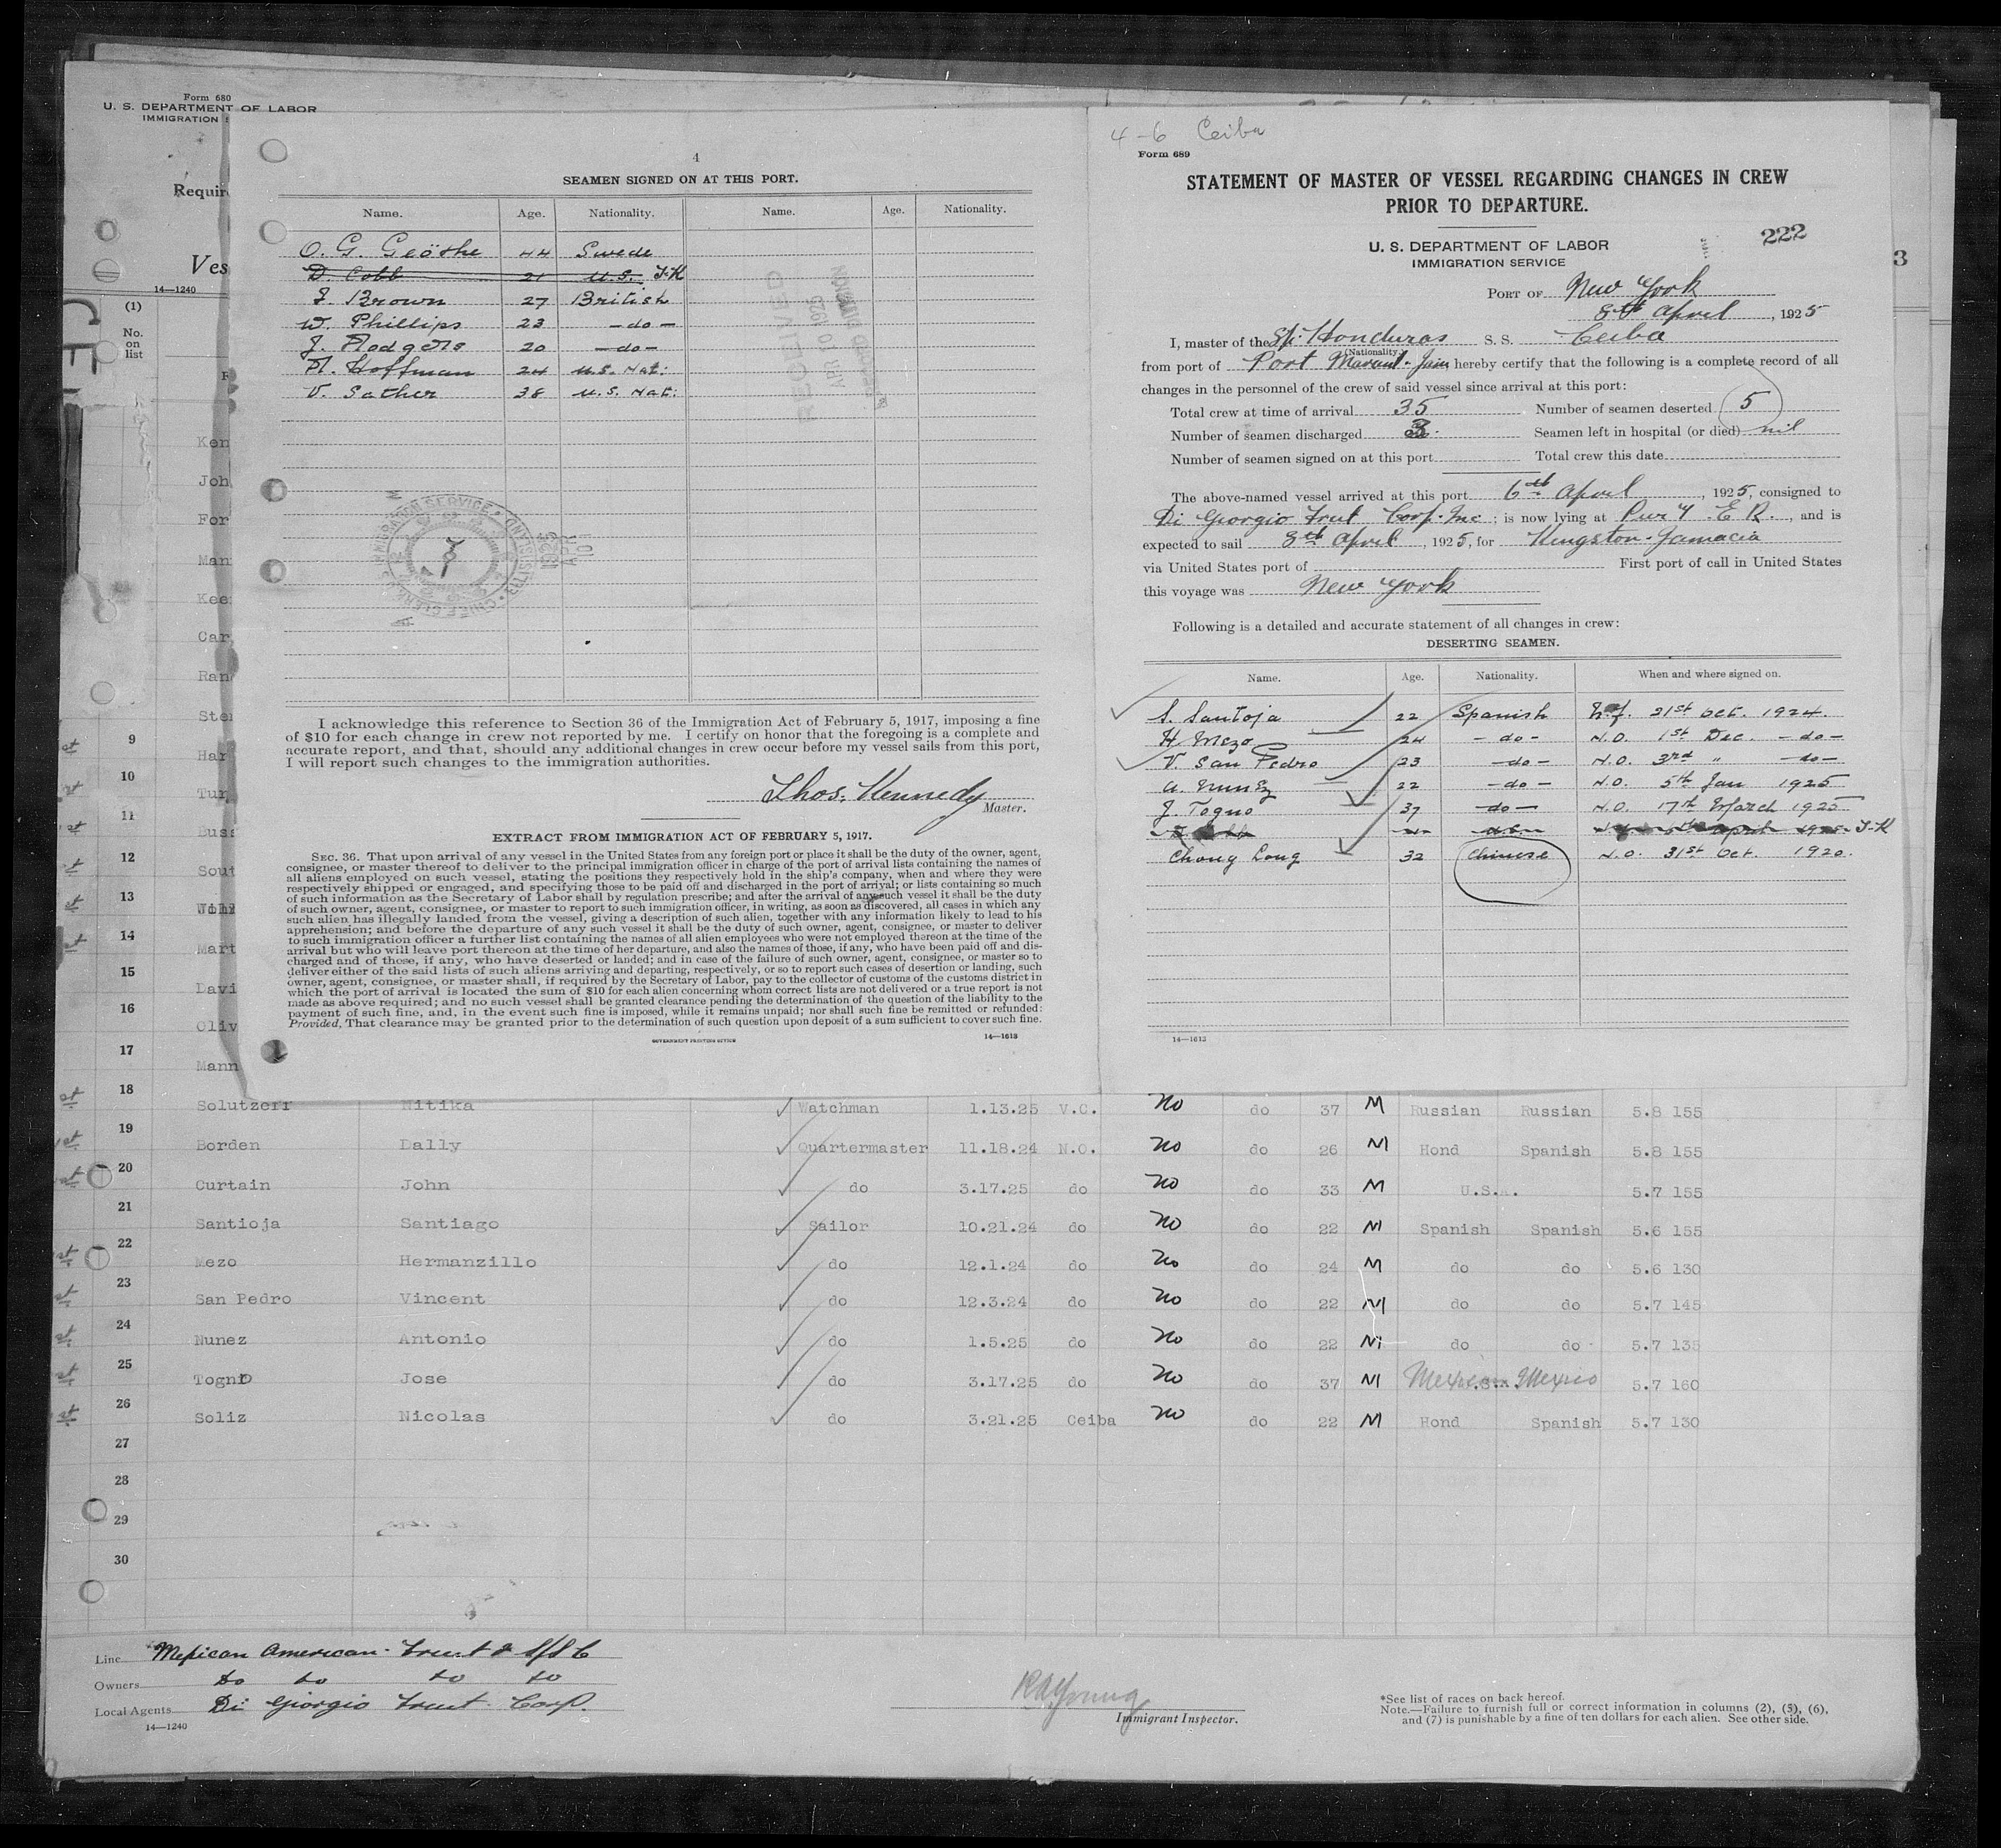 Form 680
U. S. DEPARTMENT OF LABOR
IMMIGRATION
Requir
Ves
14—1240
(1)
No.
on
list
Ken
Joh
For
Man
Kee
Car
Ran
Ste
Har
Tur
Buss
Sout
Mart
Davi
Oliv
Mann
9
10
11
12
13
14
15
16
17
18
4
SEAMEN SIGNED ON AT THIS PORT.
Name. Age. Nationality. Name. Age. Nationality.
O. G. Geöthe 44 Swede
D. Cobb 21 U.S. T-K
J. Brown 27 British
W. Phillips 23 — do —
J. Hodgers 20 — do —
A. Hoffman 24 U.S. Nat:
V. Sather 38 U.S. Nat:
RECEIVED
APR 10 1925
IMMIGRATION SERVICE
I acknowledge this reference to Section 36 of the Immigration Act of February 5, 1917, imposing a fine
of $10 for each change in crew not reported by me. I certify on honor that the foregoing is a complete and
accurate report, and that, should any additional changes in crew occur before my vessel sails from this port,
I will report such changes to the immigration authorities.
Thos. Kennedy
Master.
EXTRACT FROM IMMIGRATION ACT OF FEBRUARY 5, 1917.
SEC. 36. That upon arrival of any vessel in the United States from any foreign port or place it shall be the duty of the owner, agent,
consignee, or master thereof to deliver to the principal immigration officer in charge of the port of arrival lists containing the names of
all aliens employed on such vessel, stating the positions they respectively hold in the ship's company, when and where they were
respectively shipped or engaged, and specifying those to be paid off and discharged in the port of arrival; or lists containing so much
of such information as the Secretary of Labor shall by regulation prescribe; and after the arrival of any such vessel it shall be the duty
of such owner, agent, consignee, or master to report to such immigration officer, in writing, as soon as discovered, all cases in which any
such alien has illegally landed from the vessel, giving a description of such alien, together with any information likely to lead to his
apprehension; and before the departure of any such vessel it shall be the duty of such owner, agent, consignee, or master to deliver
to such immigration officer a further list containing the names of all alien employees who were not employed thereon at the time of the
arrival but who will leave port thereon at the time of her departure, and also the names of those, if any, who have been paid off and dis-
charged and of those, if any, who have deserted or landed; and in case of the failure of such owner, agent, consignee, or master so to
deliver either of the said lists of such aliens arriving and departing, respectively, or so to report such cases of desertion or landing, such
owner, agent, consignee, or master shall, if required by the Secretary of Labor, pay to the collector of customs of the customs district in
which the port of arrival is located the sum of $10 for each alien concerning whom correct lists are not delivered or a true report is not
made as above required; and no such vessel shall be granted clearance pending the determination of the question of the liability to the
payment of such fine, and, in the event such fine is imposed, while it remains unpaid; nor shall such fine be remitted or refunded:
Provided, That clearance may be granted prior to the determination of such question upon deposit of a sum sufficient to cover such fine.
GOVERNMENT PRINTING OFFICE
14—1613
4-6 Ceiba
Form 689
STATEMENT OF MASTER OF VESSEL REGARDING CHANGES IN CREW
PRIOR TO DEPARTURE.
U. S. DEPARTMENT OF LABOR
IMMIGRATION SERVICE
222
3
PORT OF New York
8th April, 1925
I, master of the Sp. Honduras S. S. Ceiba
(Nationality.)
from port of Port Marant. Jam hereby certify that the following is a complete record of all
changes in the personnel of the crew of said vessel since arrival at this port:
Total crew at time of arrival 35 Number of seamen deserted 5
Number of seamen discharged 3. Seamen left in hospital (or died) nil
Number of seamen signed on at this port Total crew this date
The above-named vessel arrived at this port 6th April, 1925, consigned to
Di Giorgio Fruit Corp. Inc; is now lying at Pier 9 E R., and is
expected to sail 8th April, 1925, for Kingston-Jamacia
via United States port of First port of call in United States
this voyage was New York
Following is a detailed and accurate statement of all changes in crew:
DESERTING SEAMEN.
Name. Age. Nationality. When and where signed on.
S. Santoja 22 Spanish 21st Oct. 1924.
H. Mezo 24 — do — N.O. 1st Dec. — do —
V. San Pedro 23 — do — N.O. 3rd " — do —
A. Nunez 22 — do — N.O. 5th Jan 1925
J. Togno 37 — do — N.O. 17th March 1925
T-K
Chong Long 32 Chinese N.O. 31st Oct. 1920.
14—1613
Solutzerr Nitika Watchman 1.13.25 V.C. No do 37 M Russian Russian 5.8 155
19 Borden Dally Quartermaster 11.18.24 N.O. No do 26 M Hond Spanish 5.8 155
20 Curtain John do 3.17.25 do No do 33 M U.S.A. 5.7 155
21 Santioja Santiago Sailor 10.21.24 do No do 22 M Spanish Spanish 5.6 155
22 Mezo Hermanzillo do 12.1.24 do No do 24 M do do 5.6 130
23 San Pedro Vincent do 12.3.24 do No do 22 M do do 5.7 145
24 Nunez Antonio do 1.5.25 do No do 22 M do do 5.7 135
25 Togno Jose do 3.17.25 do No do 37 M Mexican Mexico 5.7 160
26 Soliz Nicolas do 3.21.25 Ceiba No do 22 M Hond Spanish 5.7 130
27
28
29
30
Line Mexican American Fruit & S/S C
Owners do do do do
Local Agents Di Giorgio Fruit Corp.
14—1240
RAYoung
Immigrant Inspector.
*See list of races on back hereof.
Note.—Failure to furnish full or correct information in columns (2), (5), (6),
and (7) is punishable by a fine of ten dollars for each alien. See other side.